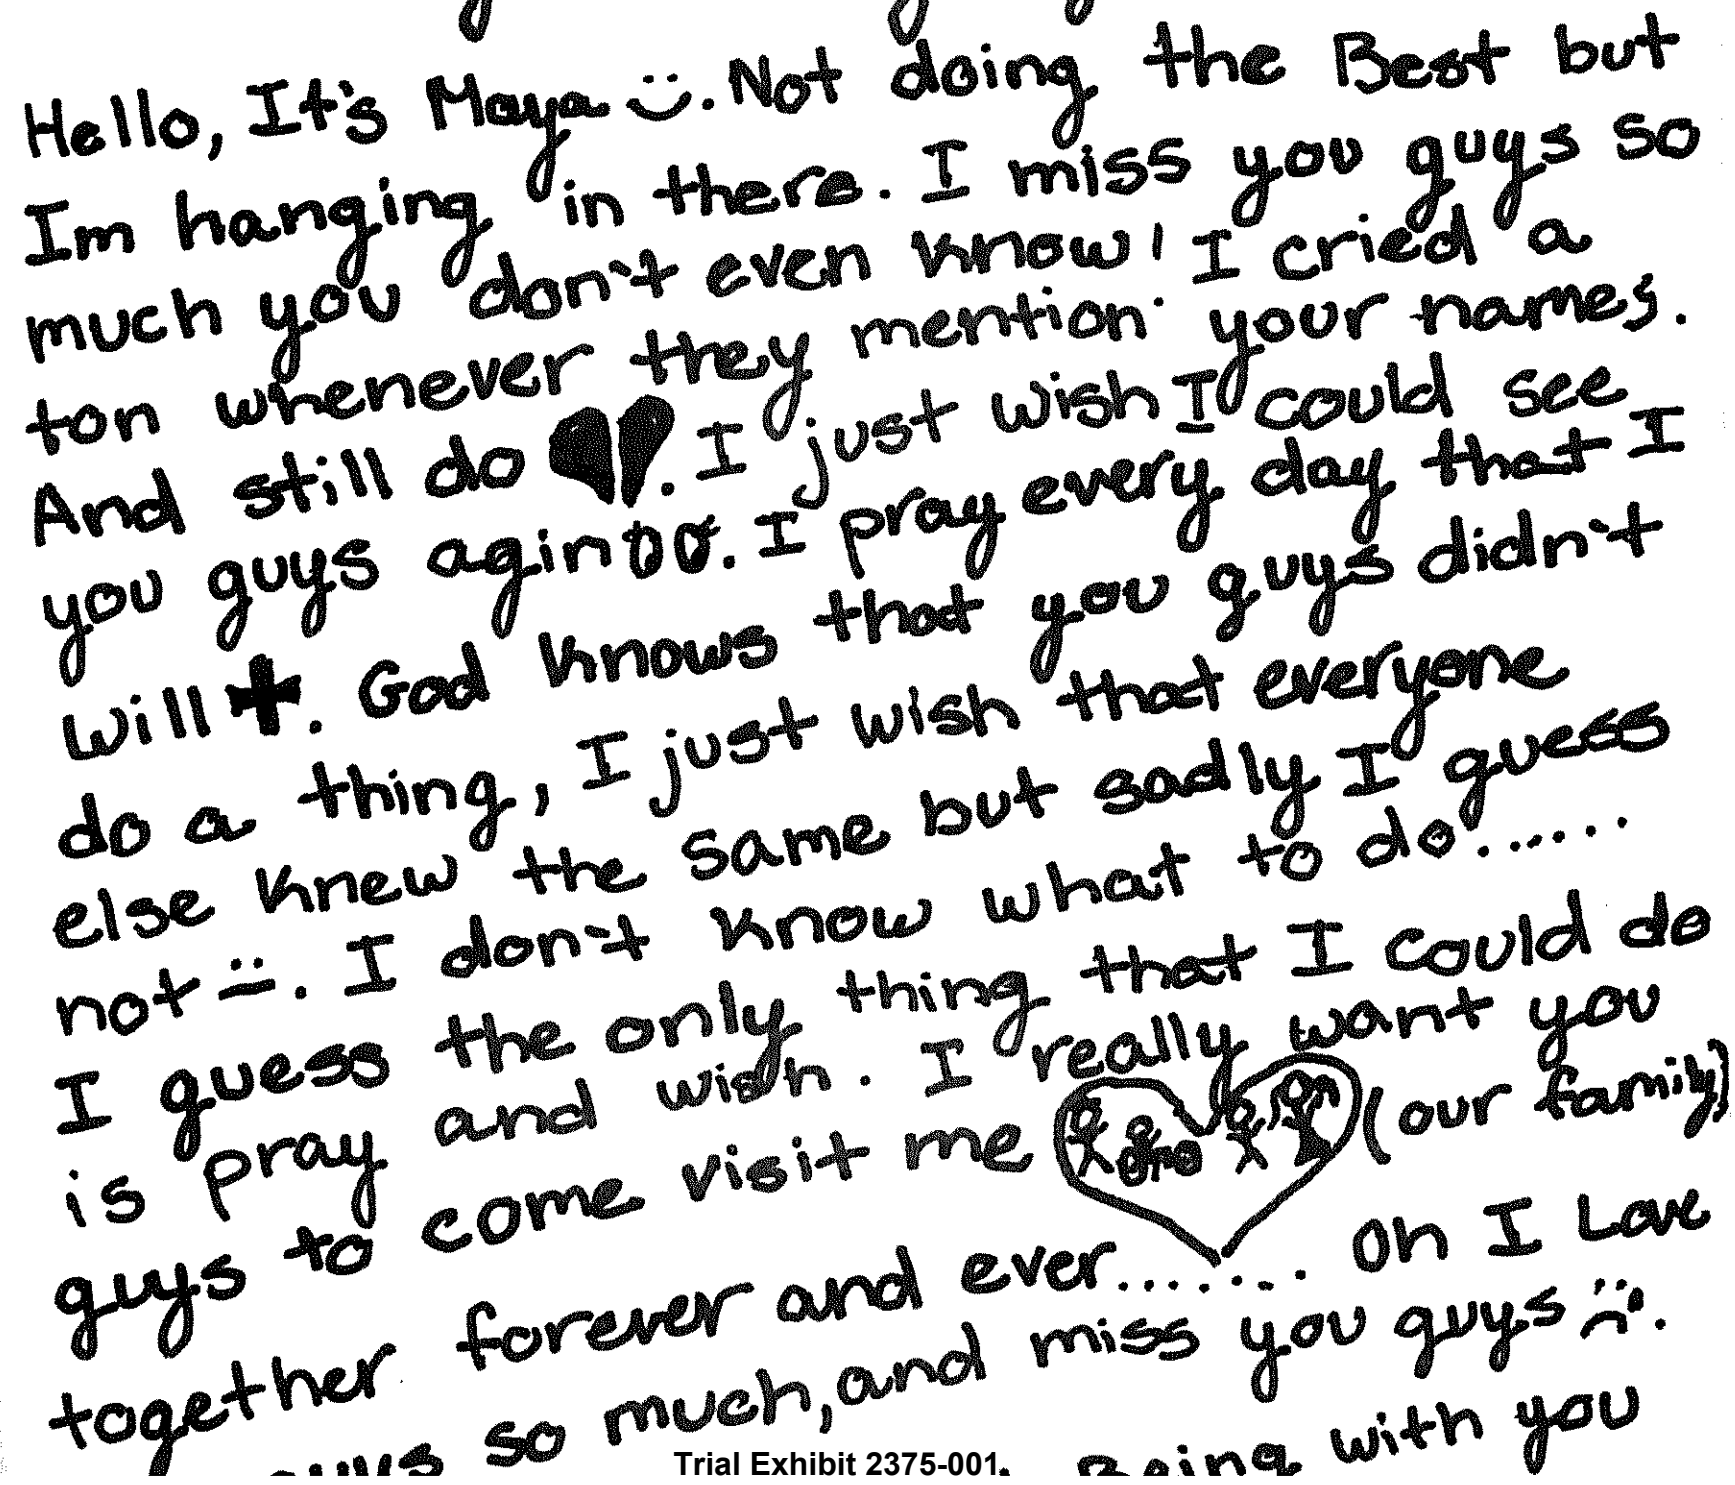 Hello, It's Maya. Not doing the Best but
Im hanging in there. I miss you guys so
much you don't even know! I cried a
ton whenever they mention your names.
And still do. I just wish I could see
you guys agin. I pray every day that I
will. God knows that you guys didn't
do a thing, I just wish that everyone
else knew the same but sadly I guess
not. I don't know what to do......
I guess the only thing that I could do
is pray and wish. I really want you
guys to come visit me (our family)
together forever and ever....... Oh I Love
guys so much, and miss you guys.
Being with you
Trial Exhibit 2375-001